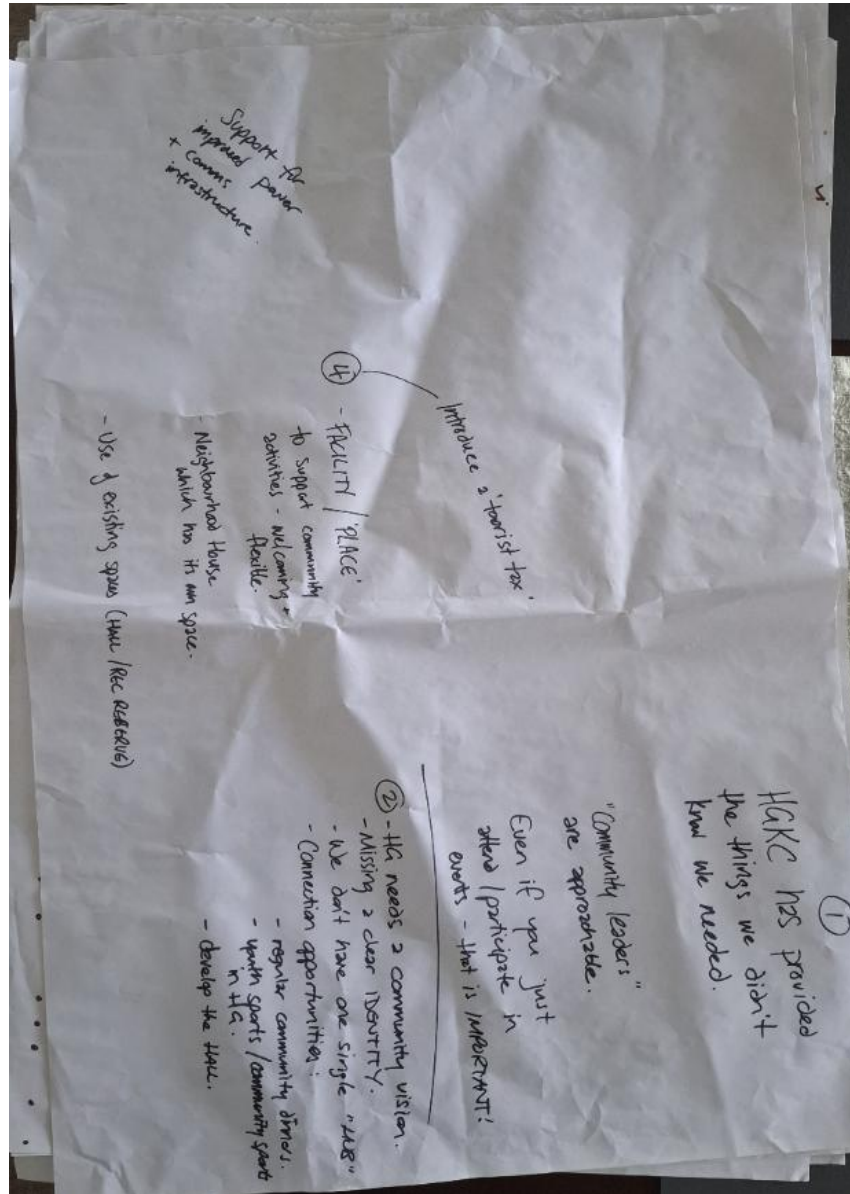 ①
HGKC has provided
the things we didn't
know we needed.
"Community leaders"
are approachable.
Even if you just
attend / participate in
events - that is IMPORTANT!
② - HG needs a community vision.
- Missing a clear IDENTITY.
- We don't have one single "HUB"
- Connection opportunities:
- regular community dinners.
- youth sports / community sports
in HG.
- develop the HALL.
Introduce a 'tourist tax'
④ - FACILITY / 'PLACE'
to support community
activities - welcoming +
flexible.
- Neighbourhood House
which has its own space.
- Use of existing spaces (HALL / REC RESERVE)
Support for
improved power
+ comms
infrastructure.